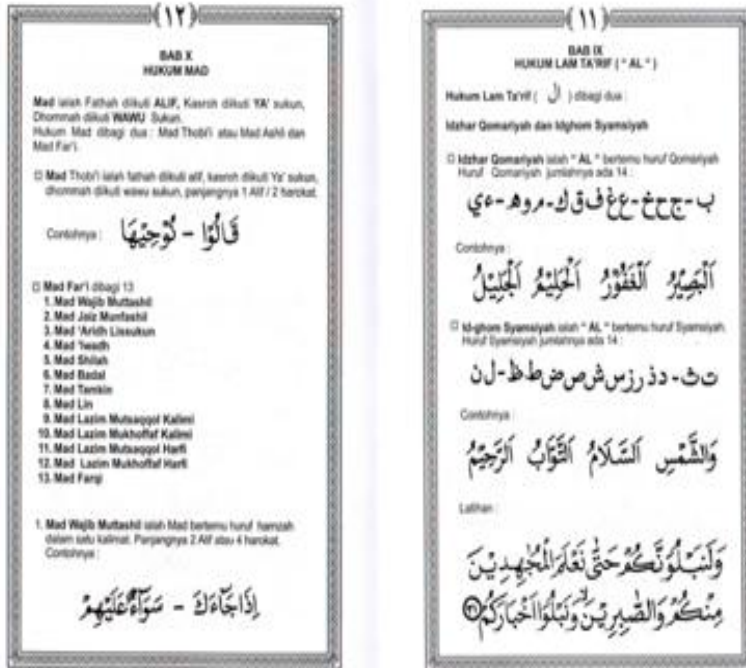 (١٢)
BAB X
HUKUM MAD
Mad ialah Fathah diikuti ALIF, Kasroh diikuti YA' sukun,
Dhommah diikuti WAWU Sukun.
Hukum Mad dibagi dua : Mad Thobi'i atau Mad Ashli dan
Mad Far'i.
Mad Thobi'i ialah fathah diikuti alif, kasroh diikuti Ya' sukun,
dhommah diikuti wawu sukun, panjangnya 1 Alif / 2 harokat.
Contohnya : قَالُوْا - نُوْحِيْهَا
Mad Far'i dibagi 13
1. Mad Wajib Muttashil
2. Mad Jaiz Munfashil
3. Mad 'Aridh Lissukun
4. Mad 'Iwadh
5. Mad Shilah
6. Mad Badal
7. Mad Tamkin
8. Mad Lin
9. Mad Lazim Mutsaqqol Kalimi
10. Mad Lazim Mukhoffaf Kalimi
11. Mad Lazim Mutsaqqol Harfi
12. Mad Lazim Mukhoffaf Harfi
13. Mad Farqi
1. Mad Wajib Muttashil ialah Mad bertemu huruf hamzah
dalam satu kalimat. Panjangnya 2 Alif atau 4 harokat.
Contohnya :
إِذَاجَآءَكَ - سَوَآءٌعَلَيْهِمْ
(١١)
BAB IX
HUKUM LAM TA'RIF ( " AL " )
Hukum Lam Ta'rif ( ال ) dibagi dua :
Idzhar Qomariyah dan Idghom Syamsiyah
Idzhar Qomariyah ialah " AL " bertemu huruf Qomariyah
Huruf Qomariyah jumlahnya ada 14 :
ب-ج ح خ-ع غ ف ق ك-م و ه-ء ي
Contohnya :
اَلْبَصِيْرُ اَلْغَفُوْرُ اَلْحَلِيْمُ اَلْجَلِيْلُ
Id-ghom Syamsiyah ialah " AL " bertemu huruf Syamsiyah.
Huruf Syamsiyah jumlahnya ada 14 :
ت ث-د ذ ر ز س ش ص ض ط ظ-ل ن
Contohnya :
وَالشَّمْسِ اَلسَّلَامُ اَلتَّوَّابُ اَلرَّحِيْمُ
Latihan :
وَلَنَبْلُوَنَّكُمْ حَتّٰى نَعْلَمَ الْمُجٰهِدِيْنَ
مِنْكُمْ وَالصّٰبِرِيْنَۙ وَنَبْلُوَا۟ اَخْبَارَكُمْ ۝٣١